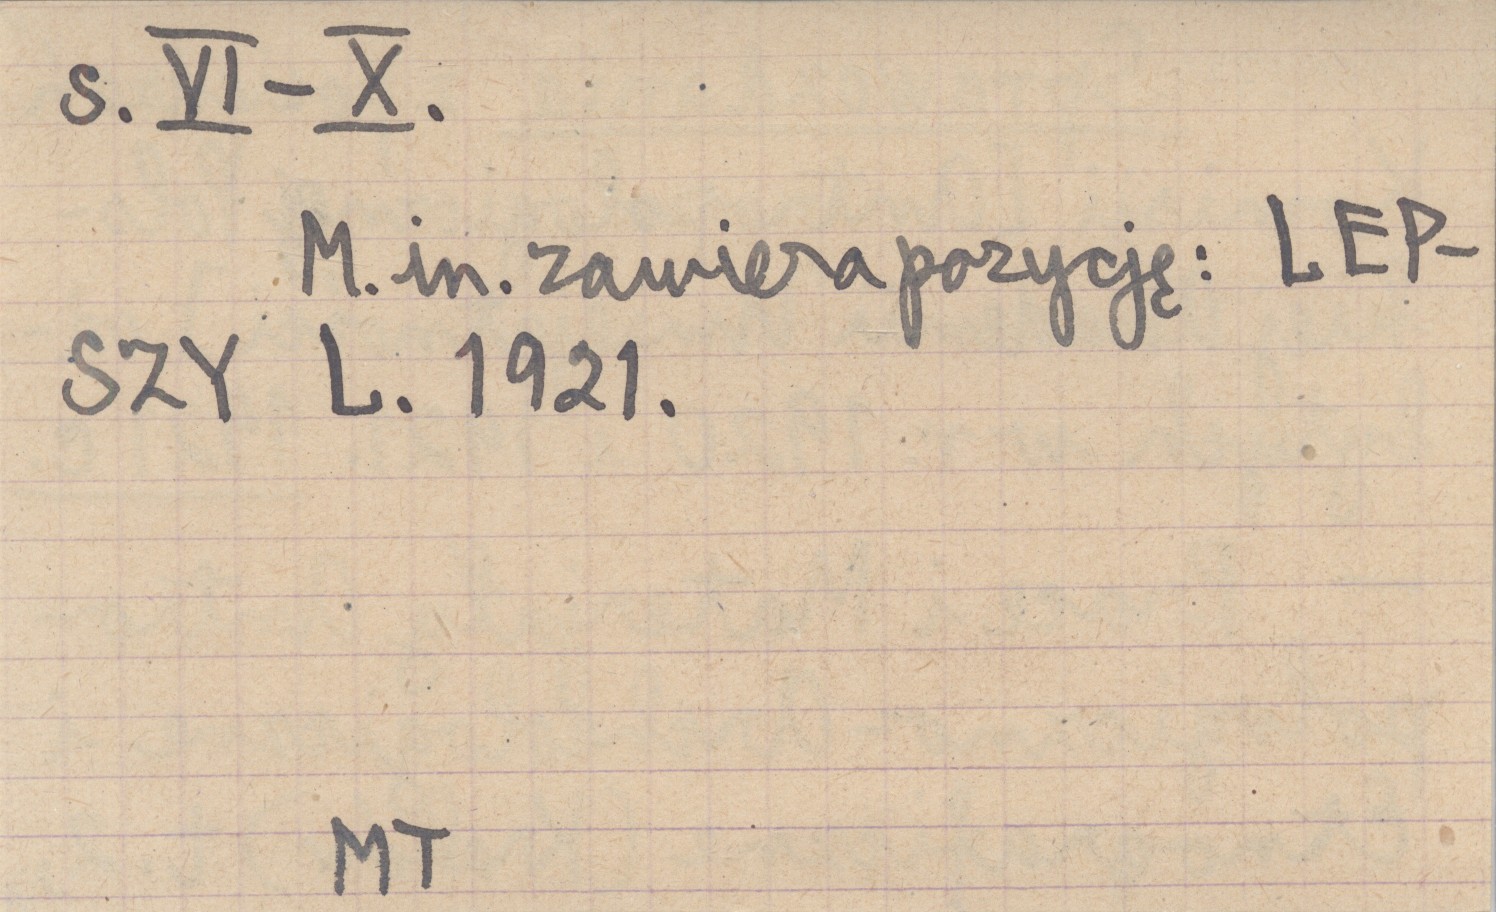 s. VI - X.
M. in. zawiera pozycję: LEP-
SZY L. 1921.
MT